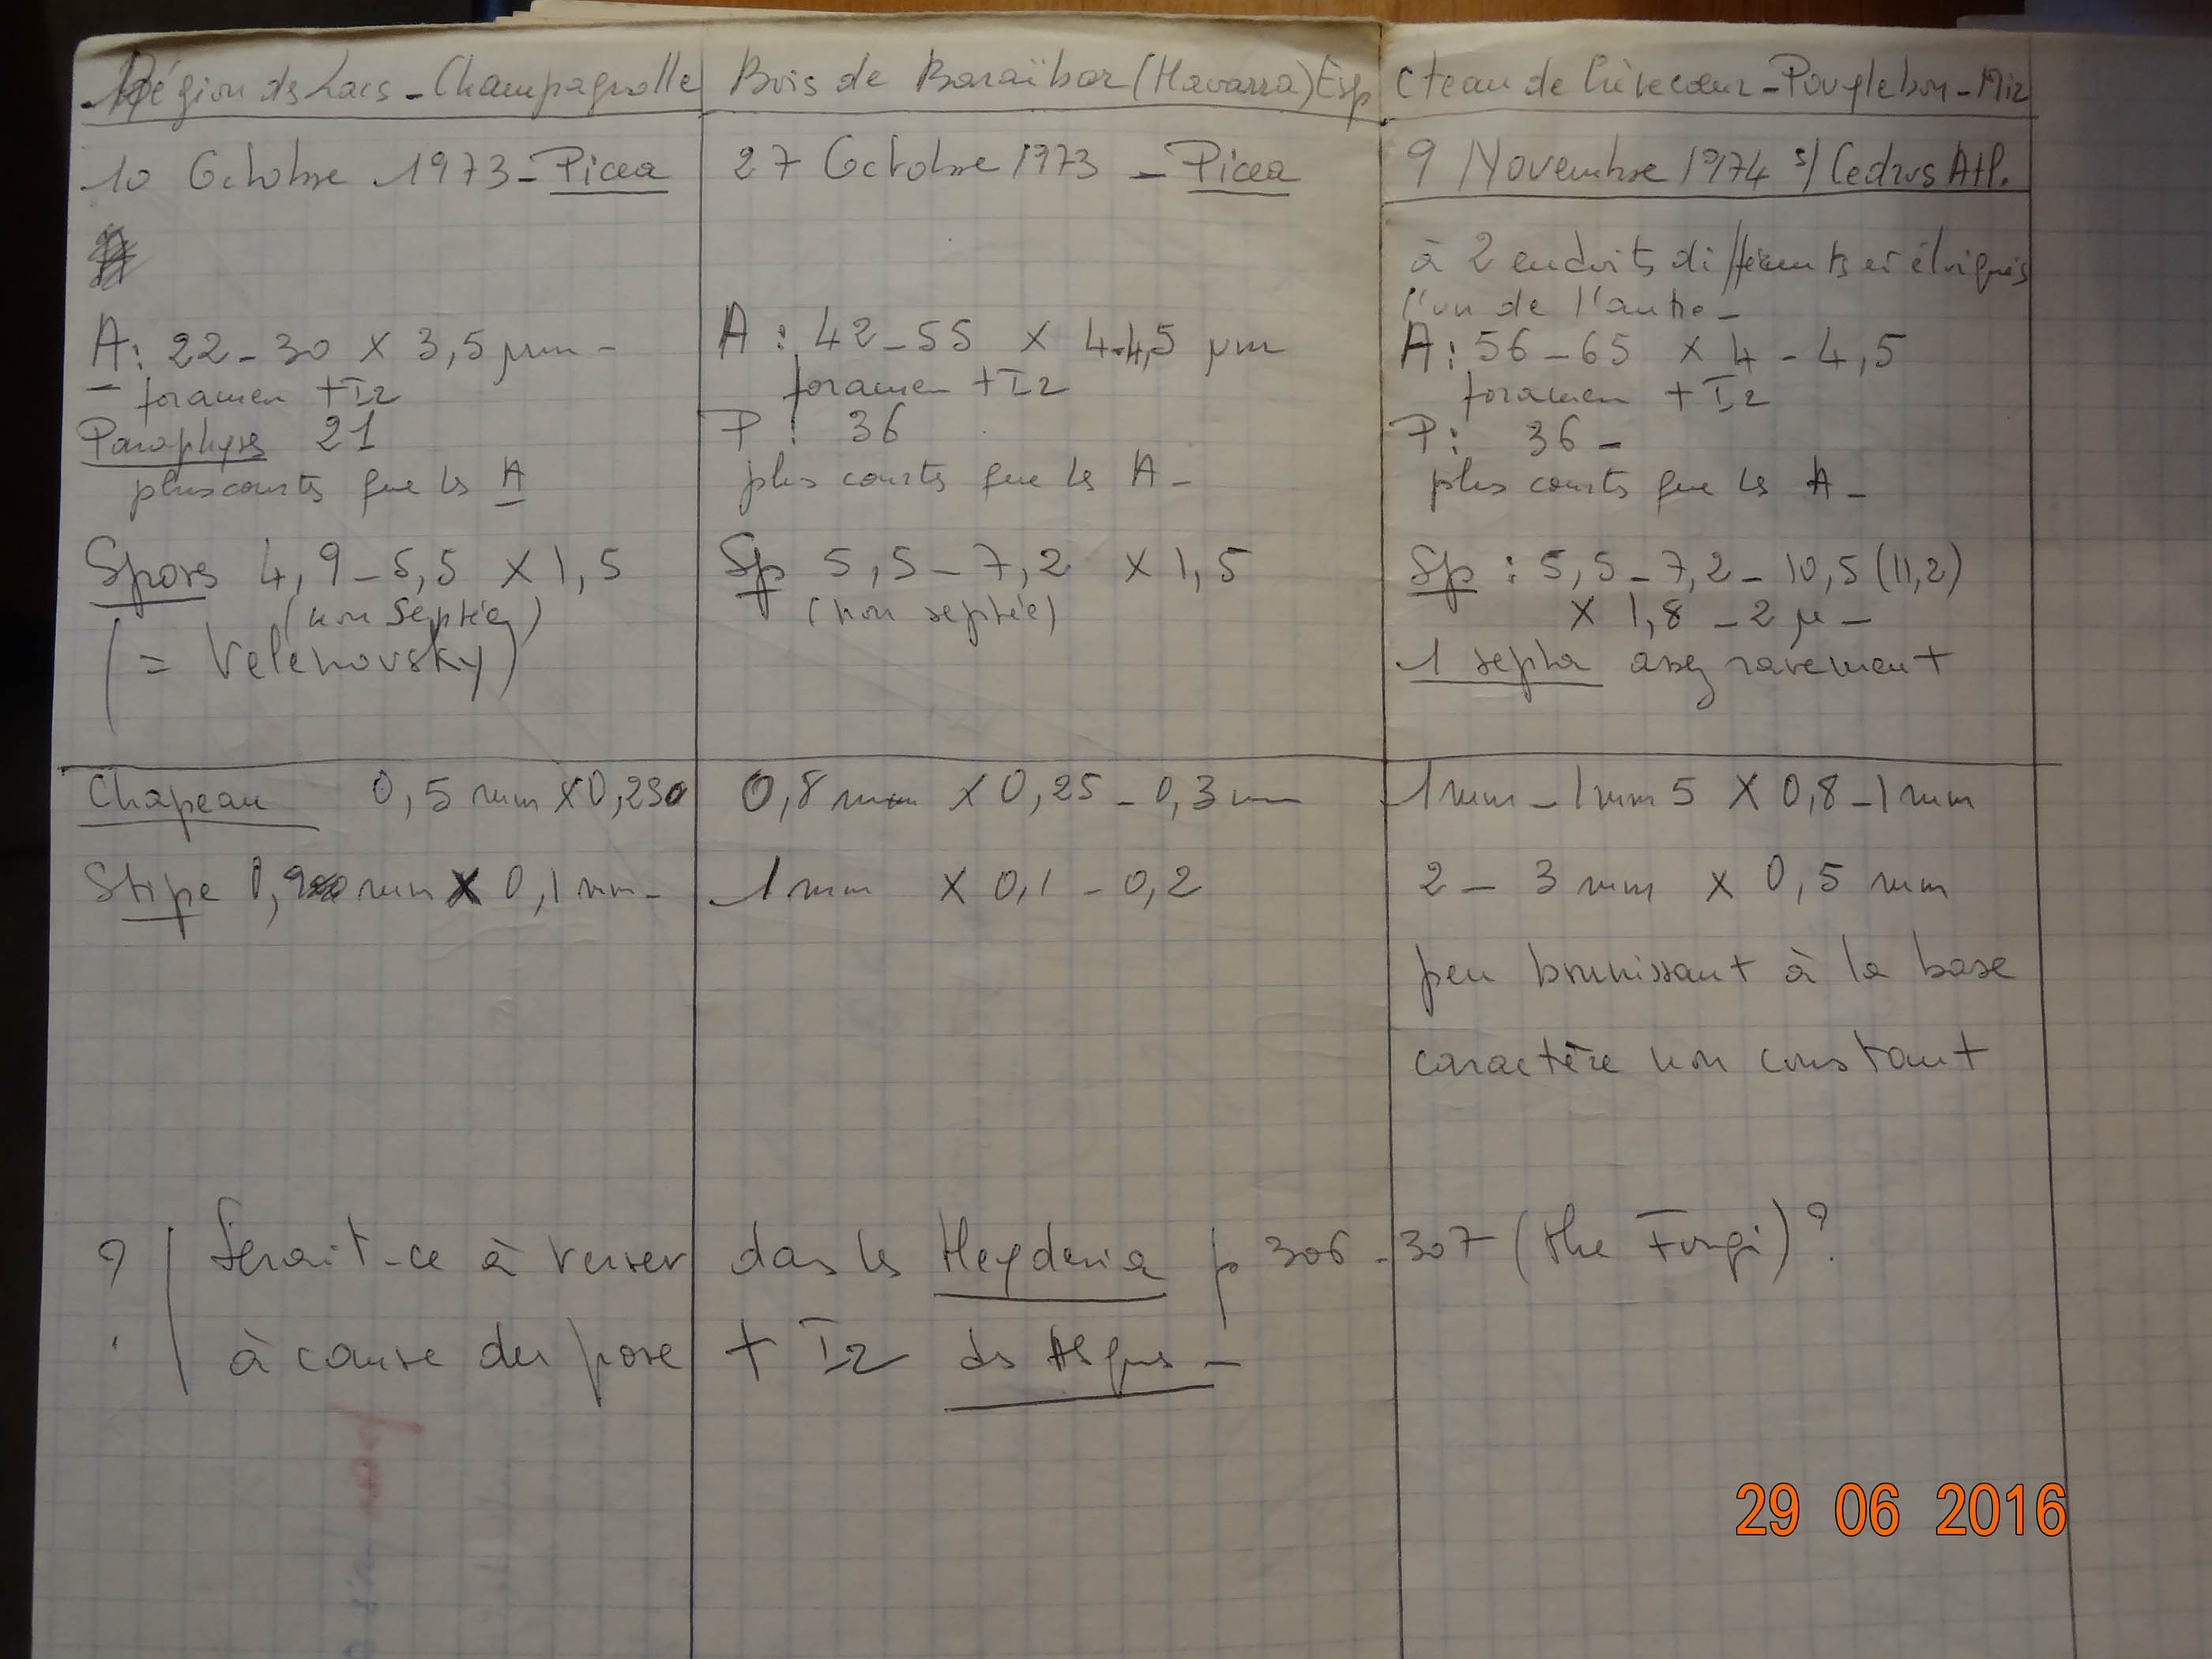 Région des Lacs - Champagnolle
10 Octobre 1973 - Picea
A : 22 - 30 x 3,5 µm -
foramen + I2
Paraphyses 21
plus courts que les A
Spores 4,9 - 5,5 x 1,5
(non septée)
(= Velenovsky)
Bois de Baraïbar (Navarra) Esp
27 Octobre 1973 - Picea
A : 42 - 55 x 4-4,5 µm
foramen + I2
P : 36
plus courts que les A -
Sp 5,5 - 7,2 x 1,5
(non septée)
Cteau de Crèvecoeur -
9 Novembre 1974 s/ Cedrus Atl.
à 2 endroits différents et éloignés
l'un de l'autre -
A : 56 - 65 x 4 - 4,5
foramen + I2
P : 36 -
plus courts que les A -
Sp : 5,5 - 7,2 - 10,5 (11,2)
x 1,8 - 2 µ -
1 septa assez rarement
Chapeau 0,5 mm x 0,230
0,8 mm x 0,25 - 0,3 mm
1 mm - 1 mm 5 x 0,8 - 1 mm
Stipe 0,9 mm x 0,1 mm -
1 mm x 0,1 - 0,2
2 - 3 mm x 0,5 mm
peu brunissant à la base
caractère non constant
? Serait-ce à verser dans les Heyderia p 306 - 307 (the Fungi) ?
à cause du pore + I2 des Asques -
29 06 2016